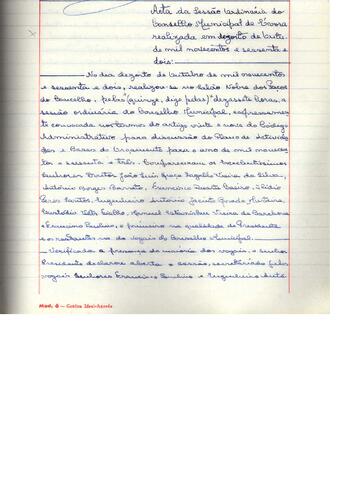 Acta da Sessão Ordinária do
Conselho Municipal de Évora
realizada em dezoito de Outu-
de mil novecentos e sessenta e
dois:
No dia dezoito de Outubro de mil novecentos
e sessenta e dois, realizou-se no Salão Nobre dos Paços
do Concelho, pelas (quinze, digo pelas) dezassete horas, a
sessão ordinária do Conselho Municipal, expressamen-
te convocada nos termos do artigo vinte e nove do Código
Administrativo para discussão do Plano de Activida-
des e Bases do Orçamento para o ano de mil novecen-
tos e sessenta e três. Compareceram os Excelentíssimos
Senhores Doutor João Luís Vieira da Silva,
António Borges Barreto, Francisco Duarte
Engenheiro António Jacinto
Manuel Vieira de
e Ermelino Paulino, o primeiro na qualidade de Presidente
e os restantes na de vogais do Conselho Municipal.
Verificada a presença da maioria dos vogais, o senhor
Presidente declarou aberta a sessão, secretariado pelos
vogais Senhores Ermelino Paulino e Engenheiro Antó-
Mod. G